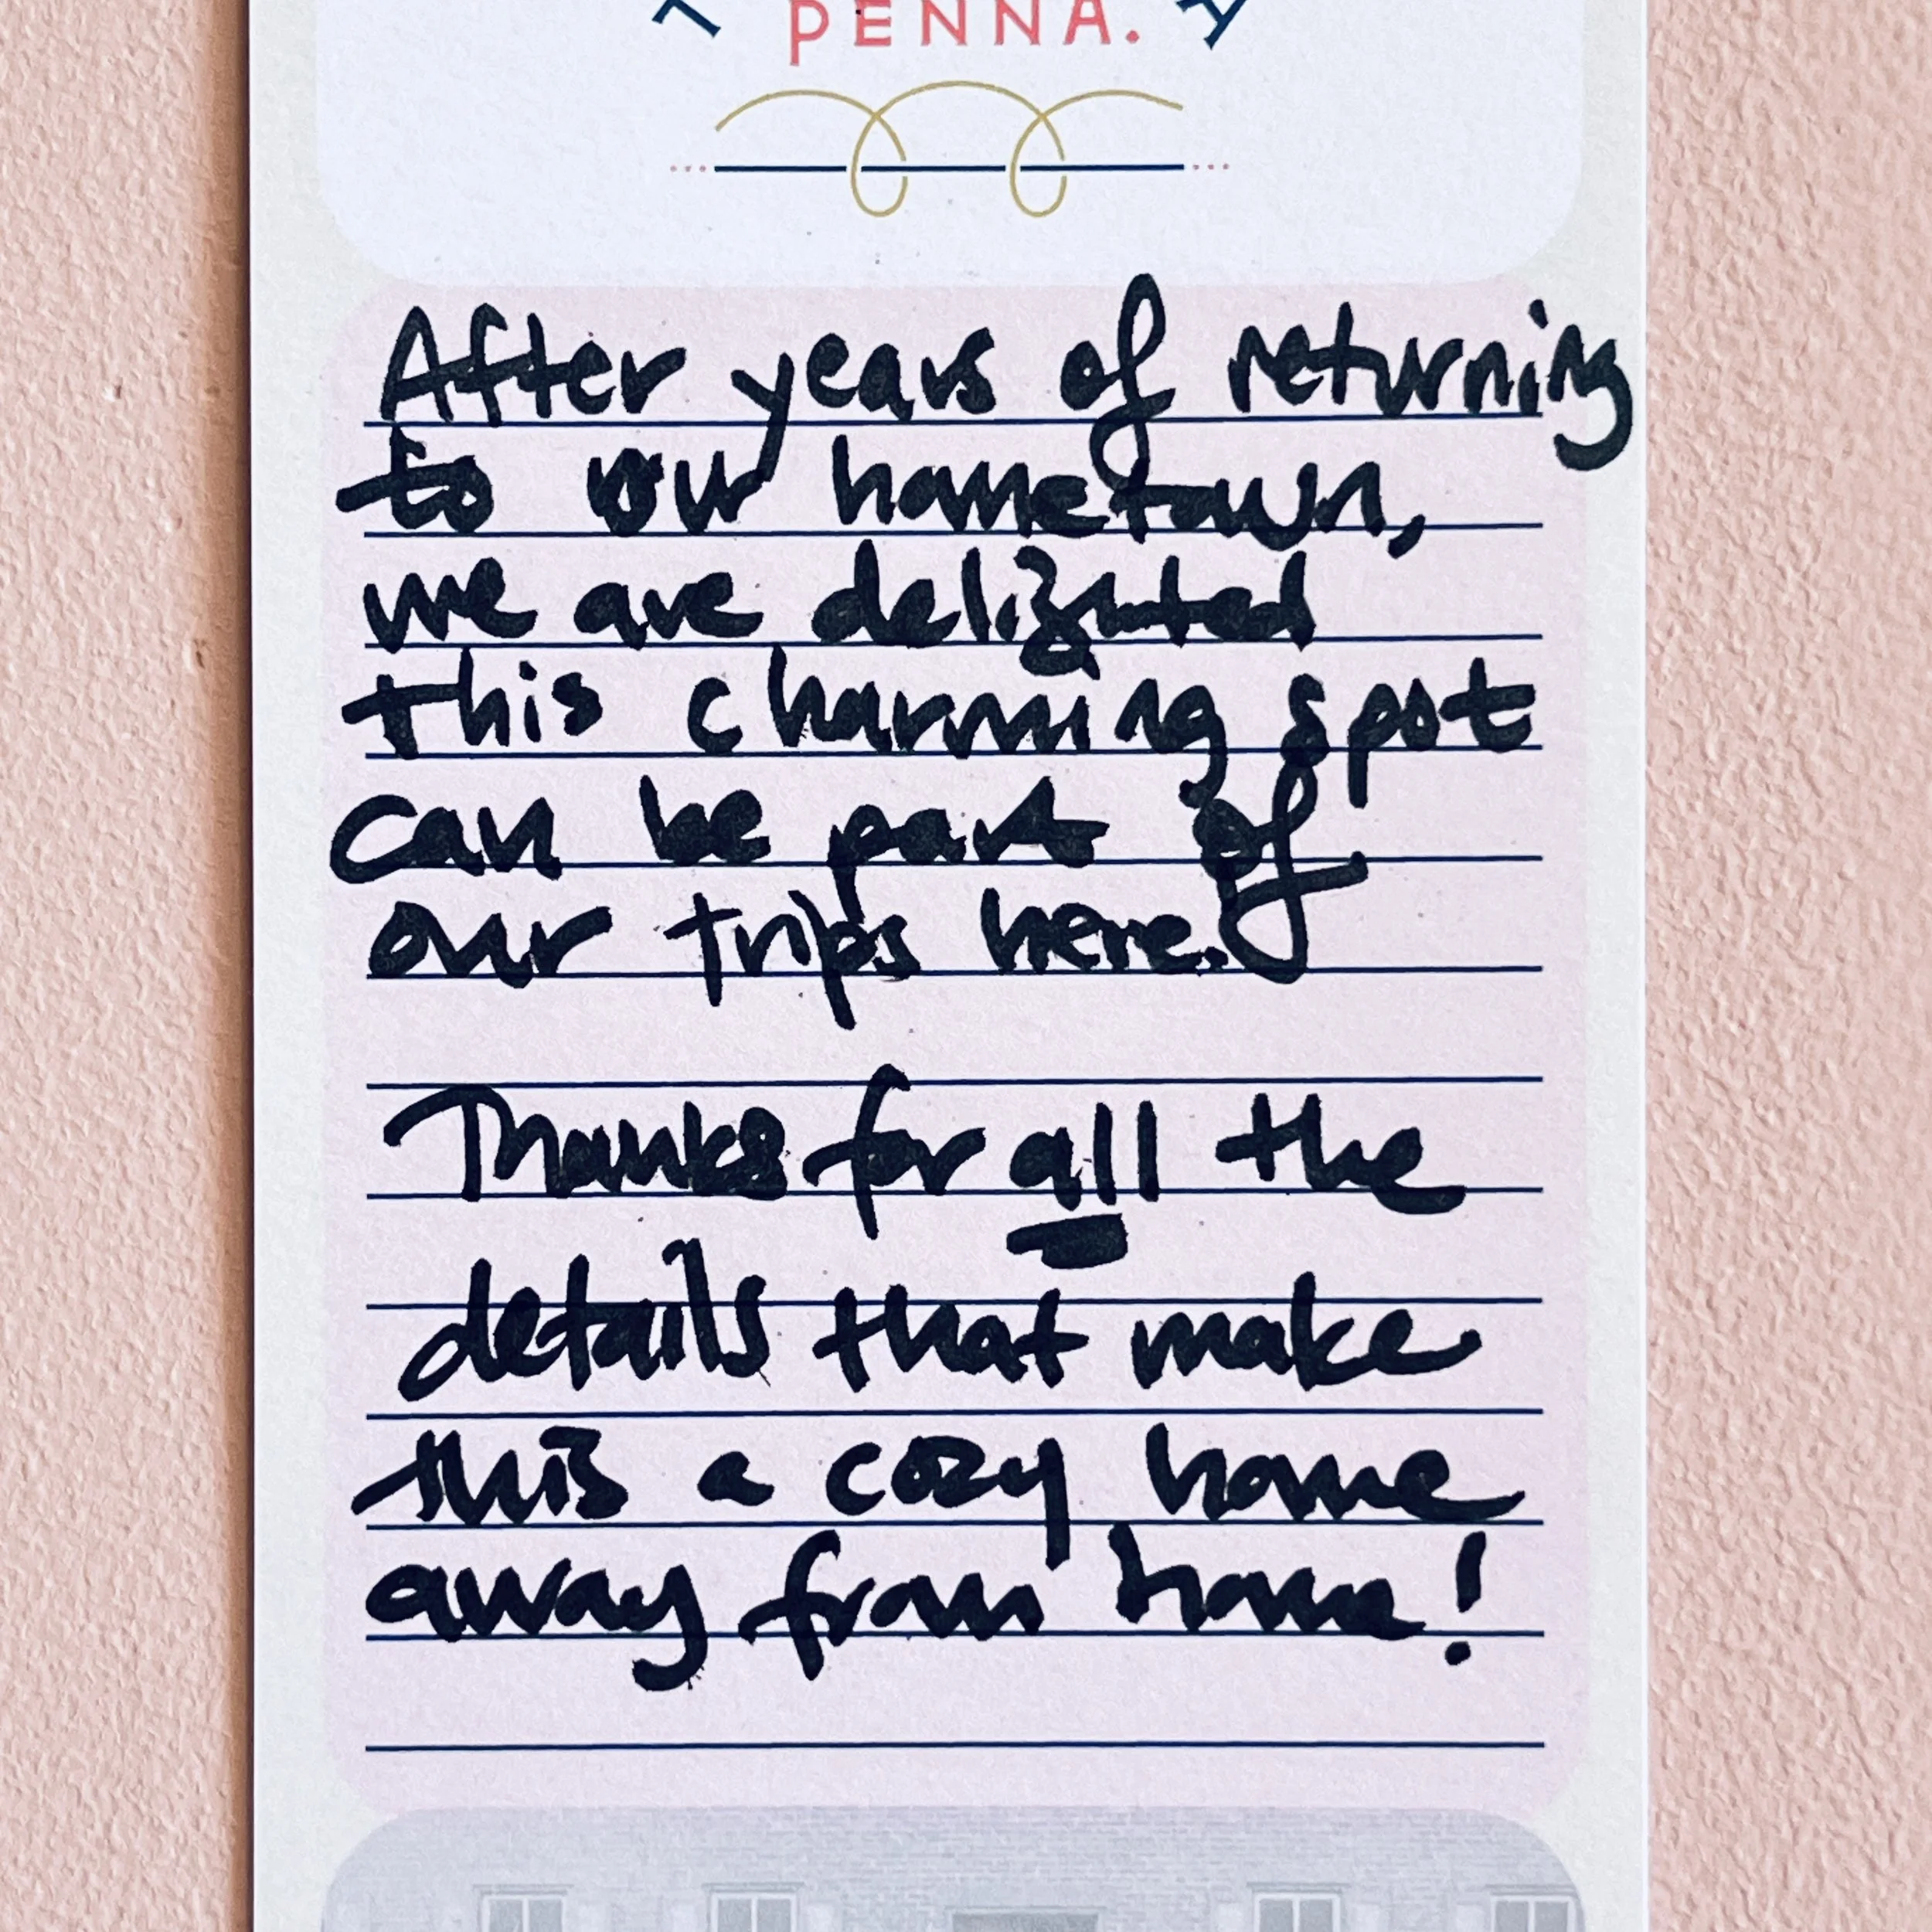 PENNA.
After years of returning
to our hometown,
we are delighted
this charming spot
can be part of
our trips here.
Thanks for all the
details that make
this a cozy home
away from home!